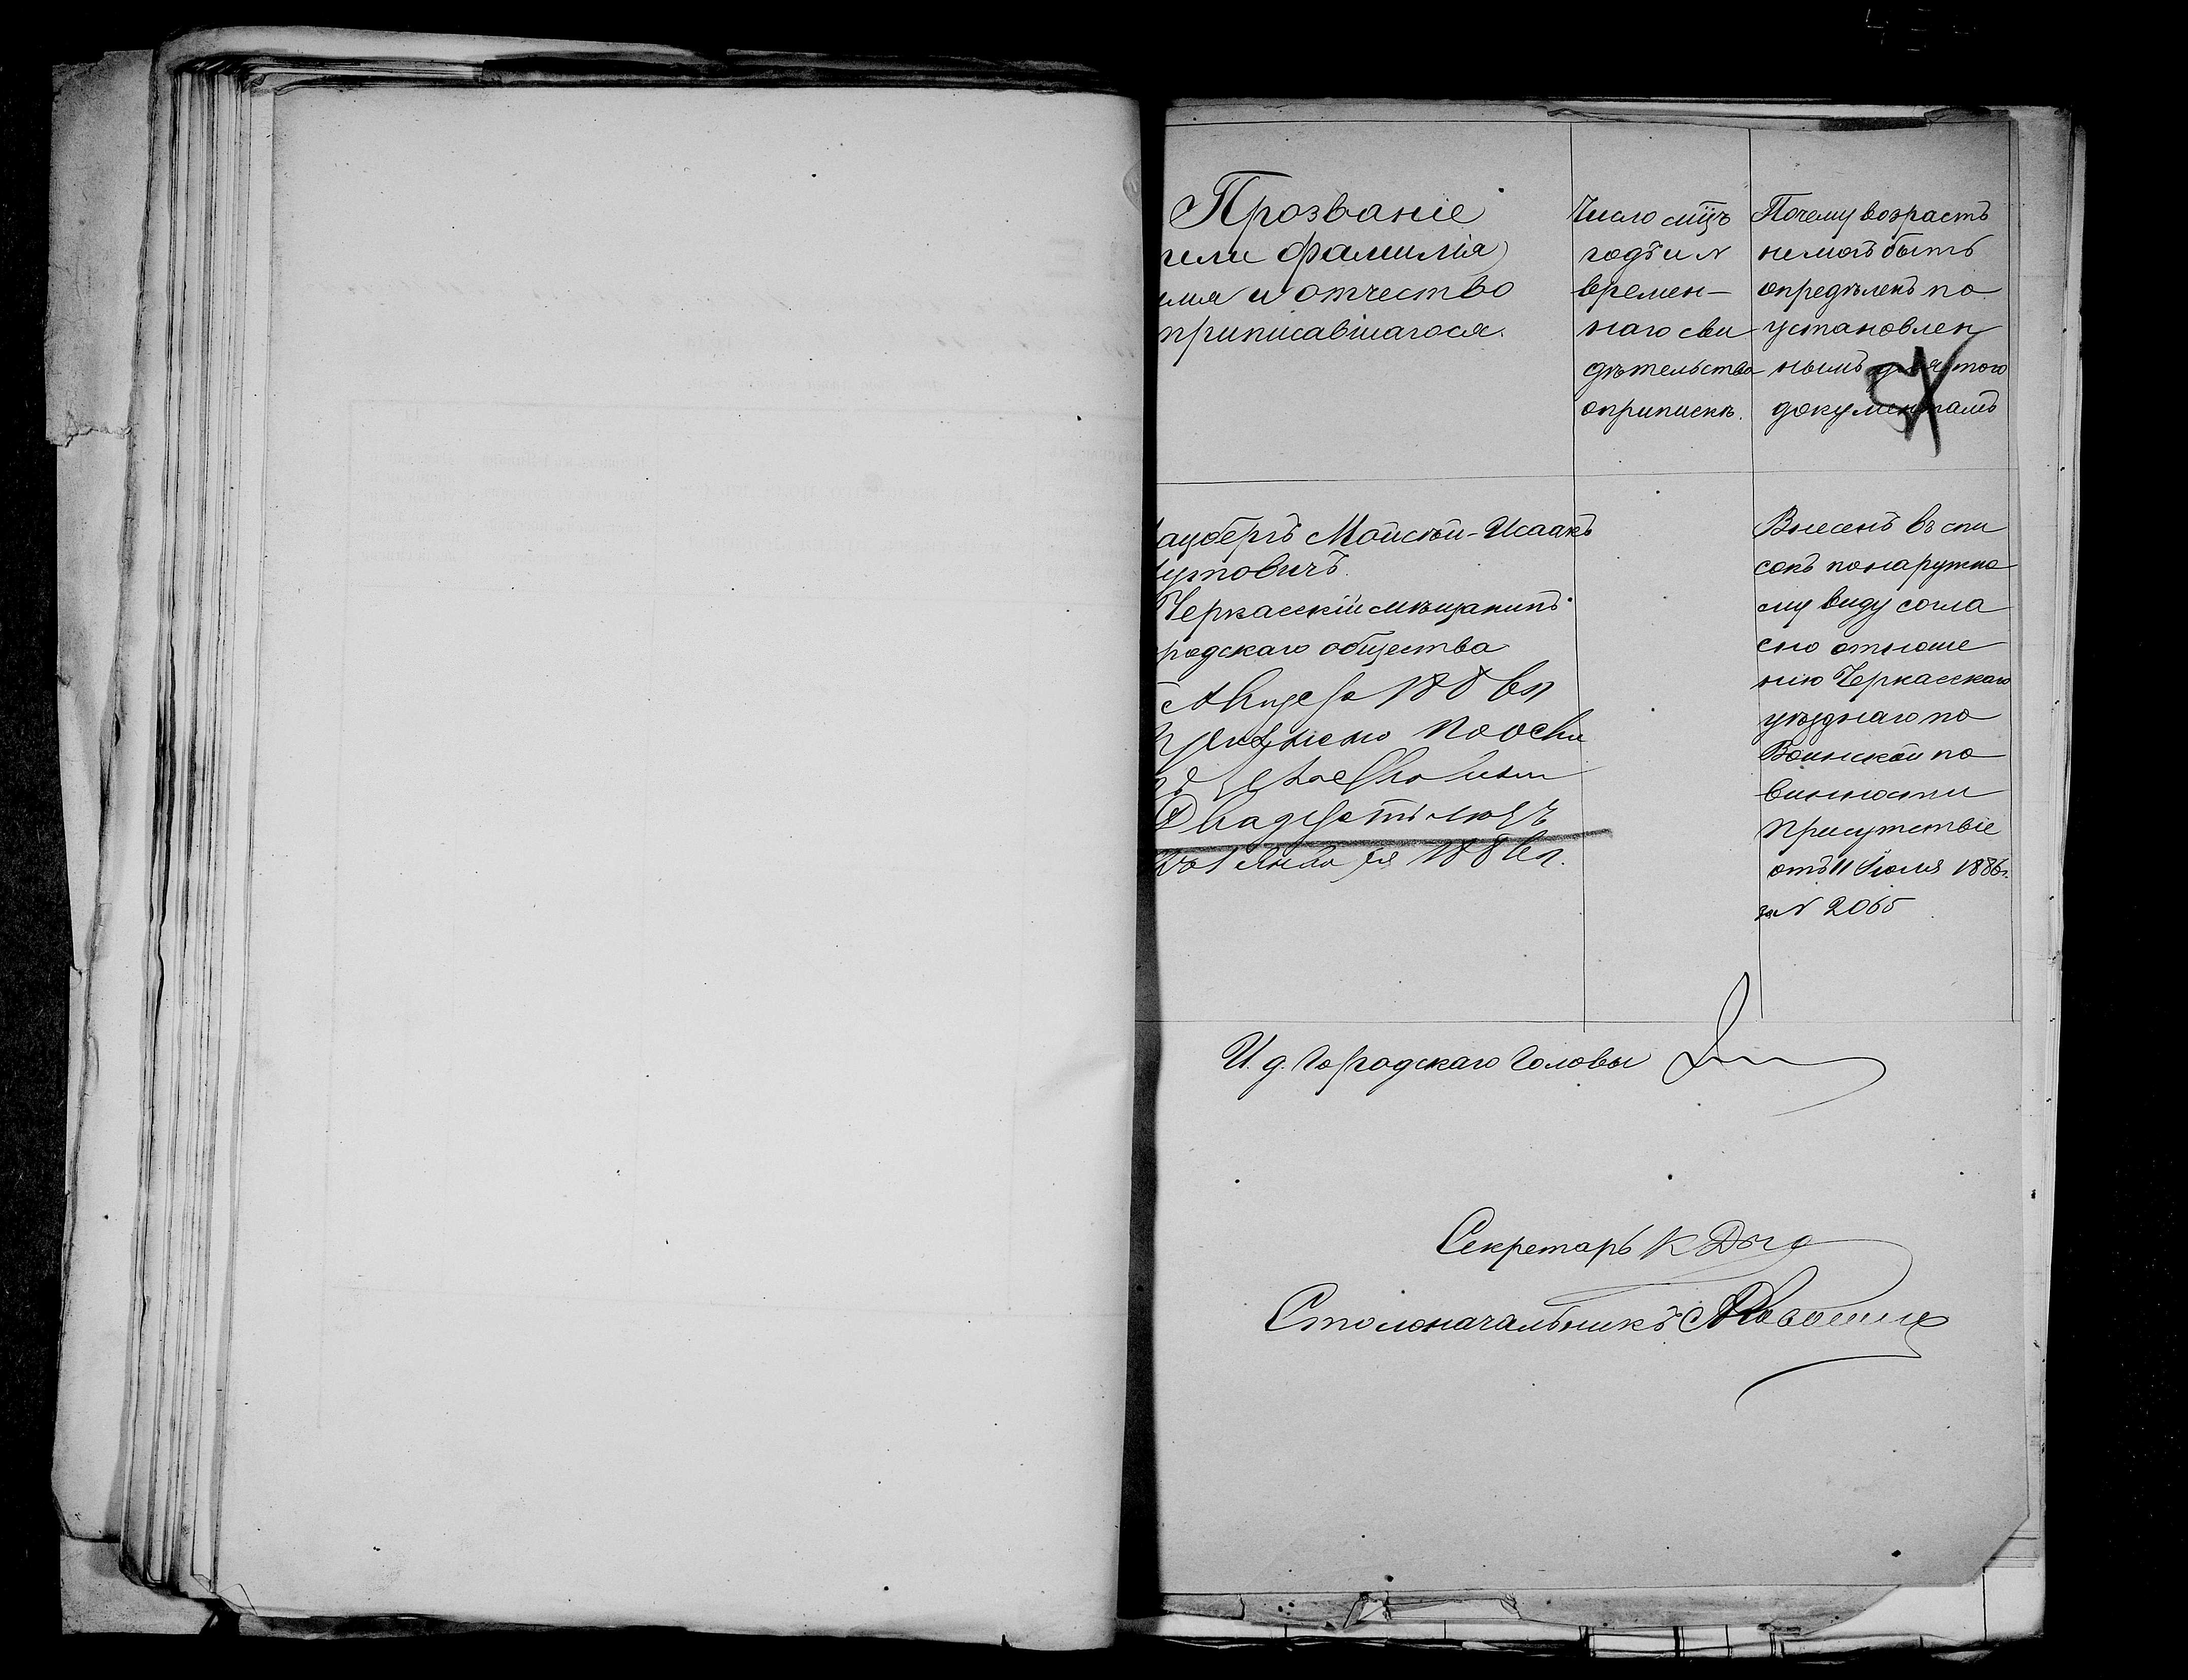 Прозваніе
или фамилія
имя и отчество
приписавшагося.
Число мцъ
годъ и N
времен-
наго сви
дѣтельства
о припискѣ.
Почему возрастъ
не могъ быть
опредѣленъ по
установлен
нымъ для того
документамъ
ацбергъ Мойсѣй-Исаакъ
Черкасскій мѣщанинъ
родскаго общества
Августа 1886 г
Двадцать
1 Января 1886 г.
Внесенъ въ спи
сокъ по наружно
му виду согла
сно отноше
нію Черкасскаго
уѣзднаго по
Воинской по
винности
Присутствіе
отъ 11 Іюля 1886 г.
за N 2065
И. д. Городскаго Головы
Секретарь К
Столоначальникъ